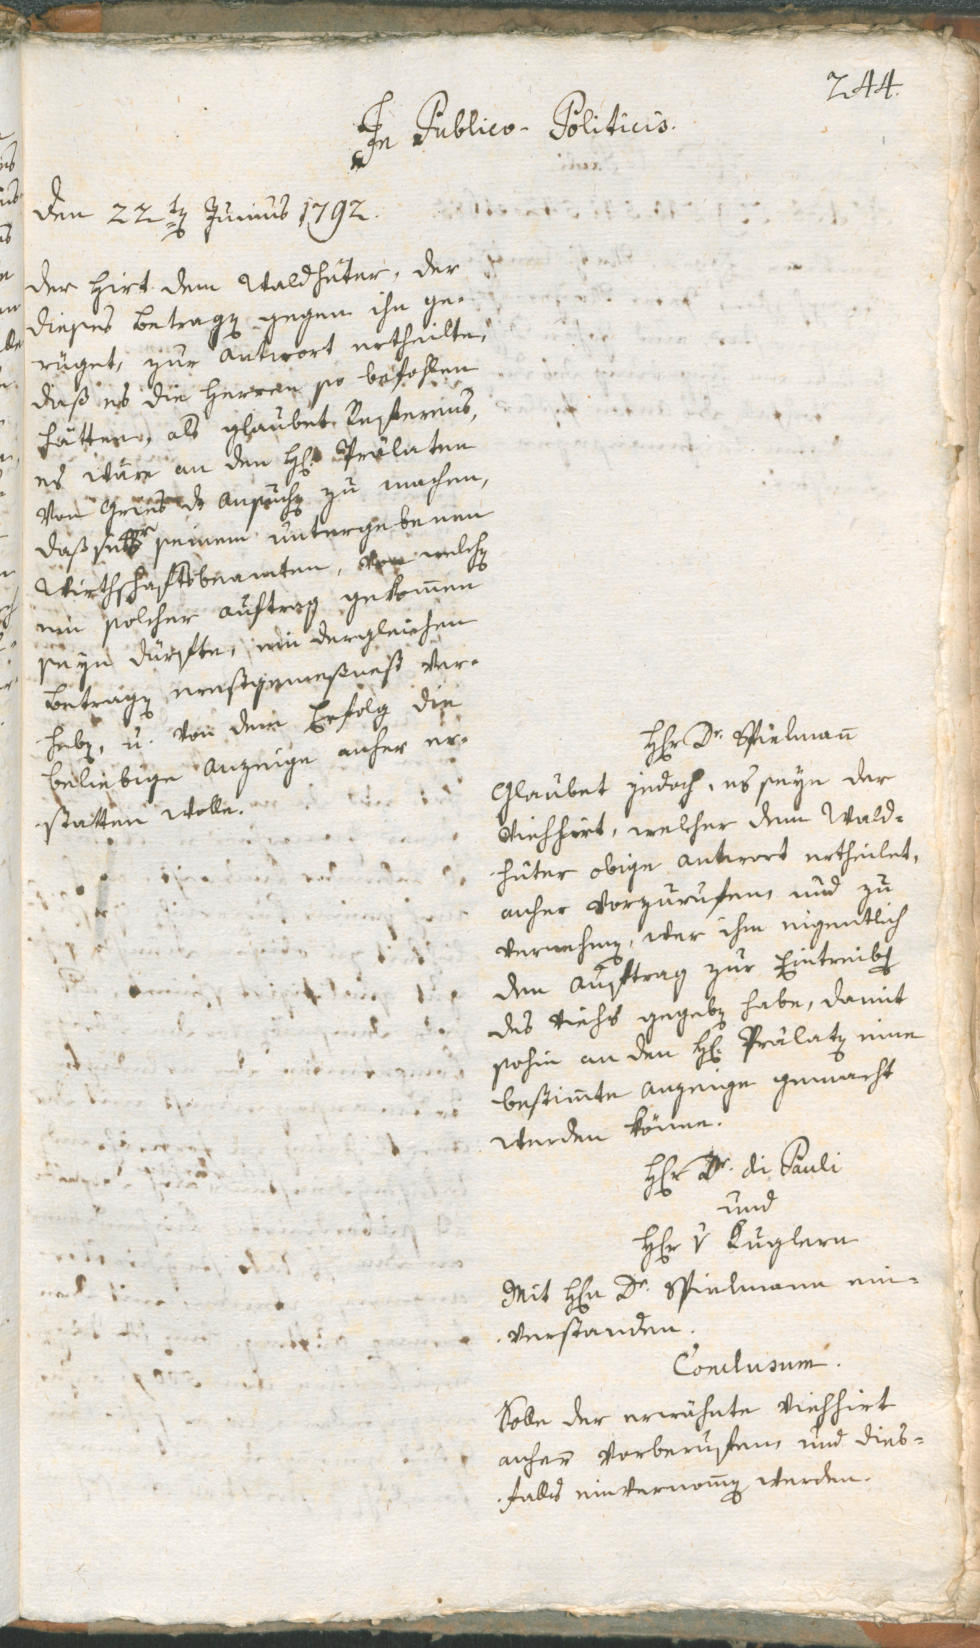 244.
In Publico-Politicis.
Den 22ten Junius 1792.
Der Hirt dem Waldhüter, der
dieses Betragen gegen ihn ge-
rüget, zur Antwort ertheilte,
daß es die Herren so befohlen
hätten, als glaubet Referens,
es wäre an den H. Prälaten
von Gries das Ansuchen zu machen,
daß seinem untergebenen
Wirthschaftsbeamten, von welchen
ein solcher Auftrag gekommen
seyn dürfte, ein dergleichen
Betragen ernstgemeßnest ver-
heben, u. von dem Erfolg die
beliebige Anzeige anher er-
statten wolle.
HEr Dr. Spielmann
Glaubet jedoch, es seye der
Viehhirt, welcher dem Wald-
hüter obige Antwort ertheilet,
anher vorzurufen und zu
vernehmen, wer ihm eigentlich
den Auftrag zur Eintreibung
des Viehs gegeben habe, damit
sohin an den H. Prälaten eine
bestimmte Anzeige gemacht
werden könne.
HEr Dr. di Pauli
und
HEr v Kuglern
Mit HEn Dr. Spielmann ein-
verstanden.
Conclusum.
Solle der erwähnte Viehhirt
anher vorberufen und dies-
falls einvernommen werden.